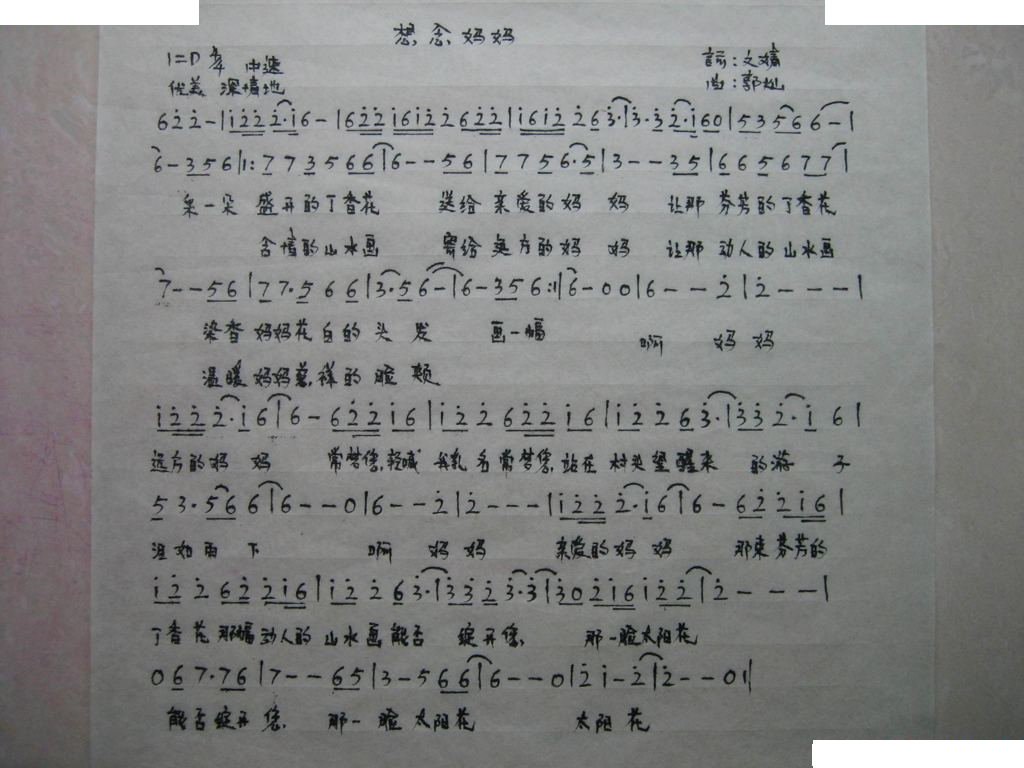 想念妈妈
1=D 4/4 中速
词:文婧
优美 深情地
曲:郭灿
6 2̇ 2̇ - | i 2̇ 2̇ 2̇·i 6 - | 6 2̇ 2̇ i 6 i 2̇ 2̇ 6 2̇ 2̇ | i 6 i 2̇ 2̇ 6 3̇· | 3̇·3̇ 2̇·i 6 0 | 5 3 5 6 6 - |
6 - 3 5 6 |: 7 7 3 5 6 6 | 6 - - 5 6 | 7 7 5 6·5 | 3 - - 3 5 | 6 6 5 6 7 7 |
采一朵 盛开的丁香花 送给 亲爱的妈 妈 让那 芬芳的丁香花
含情的山水画 寄给远方的妈 妈 让那 动人的山水画
7 - - 5 6 | 7 7·5 6 6 | 3·5 6 - | 6 - 3 5 6 :| 6 - 0 0 | 6 - - 2̇ | 2̇ - - - |
染香 妈妈花白的 头 发 画一幅 啊 妈 妈
温暖 妈妈慈祥的 脸 颊
i 2̇ 2̇ 2̇·i 6 | 6 - 6 2̇ 2̇ i 6 | i 2̇ 2̇ 6 2̇ 2̇ i 6 | i 2̇ 2̇ 6 3̇· | 3̇ 3̇ 2̇·i 6 |
远方的妈 妈 常梦您,轻喊 我乳 名 常梦您,站在 村头望 醒来 的游 子
5 3·5 6 6 | 6 - - 0 | 6 - - 2̇ | 2̇ - - - | i 2̇ 2̇ 2̇·i 6 | 6 - 6 2̇ 2̇ i 6 |
泪如雨 下 啊 妈 妈 亲爱的妈 妈 那束芬芳的
i 2̇ 2̇ 6 2̇ 2̇ i 6 | i 2̇ 2̇ 6 3̇· | 3̇ 3̇ 2̇ 3̇·3̇ | 3̇ 0 2̇ i 6 i 2̇ 2̇ | 2̇ - - - |
丁香花 那幅动人的 山水画 能否 绽开您 那一脸太阳花
0 6 7·7 6 | 7 - - 6 5 | 3 - 5 6 6 | 6 - - 0 | 2̇ i - 2̇ | 2̇ - - 0 ‖
能否绽开 您 那一 脸 太阳花 太阳 花